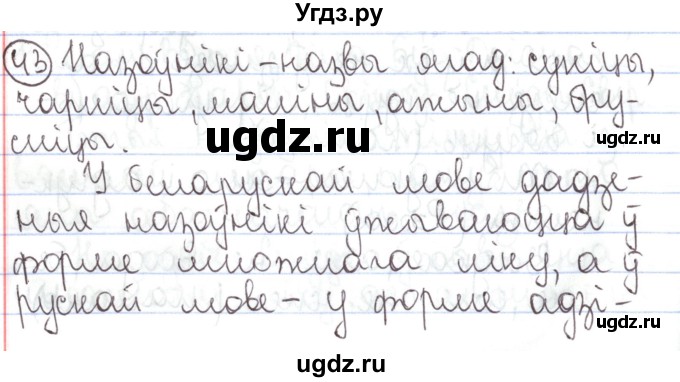 Угдз.ру
43 Назоўнікі - назвы ягад: суніцы,
чарніцы, маліны, ажыны, бру-
сніцы.
ugdz.ru
У беларускай мове дадзе-
ныя назоўнікі ўжываюцца ў
форме множнага ліку, а ў
рускай мове - у форме адзі-
ugdz.ru
ugdz.ru
ugdz.ru
ugdz.ru
ugdz.ru
ugdz.ru